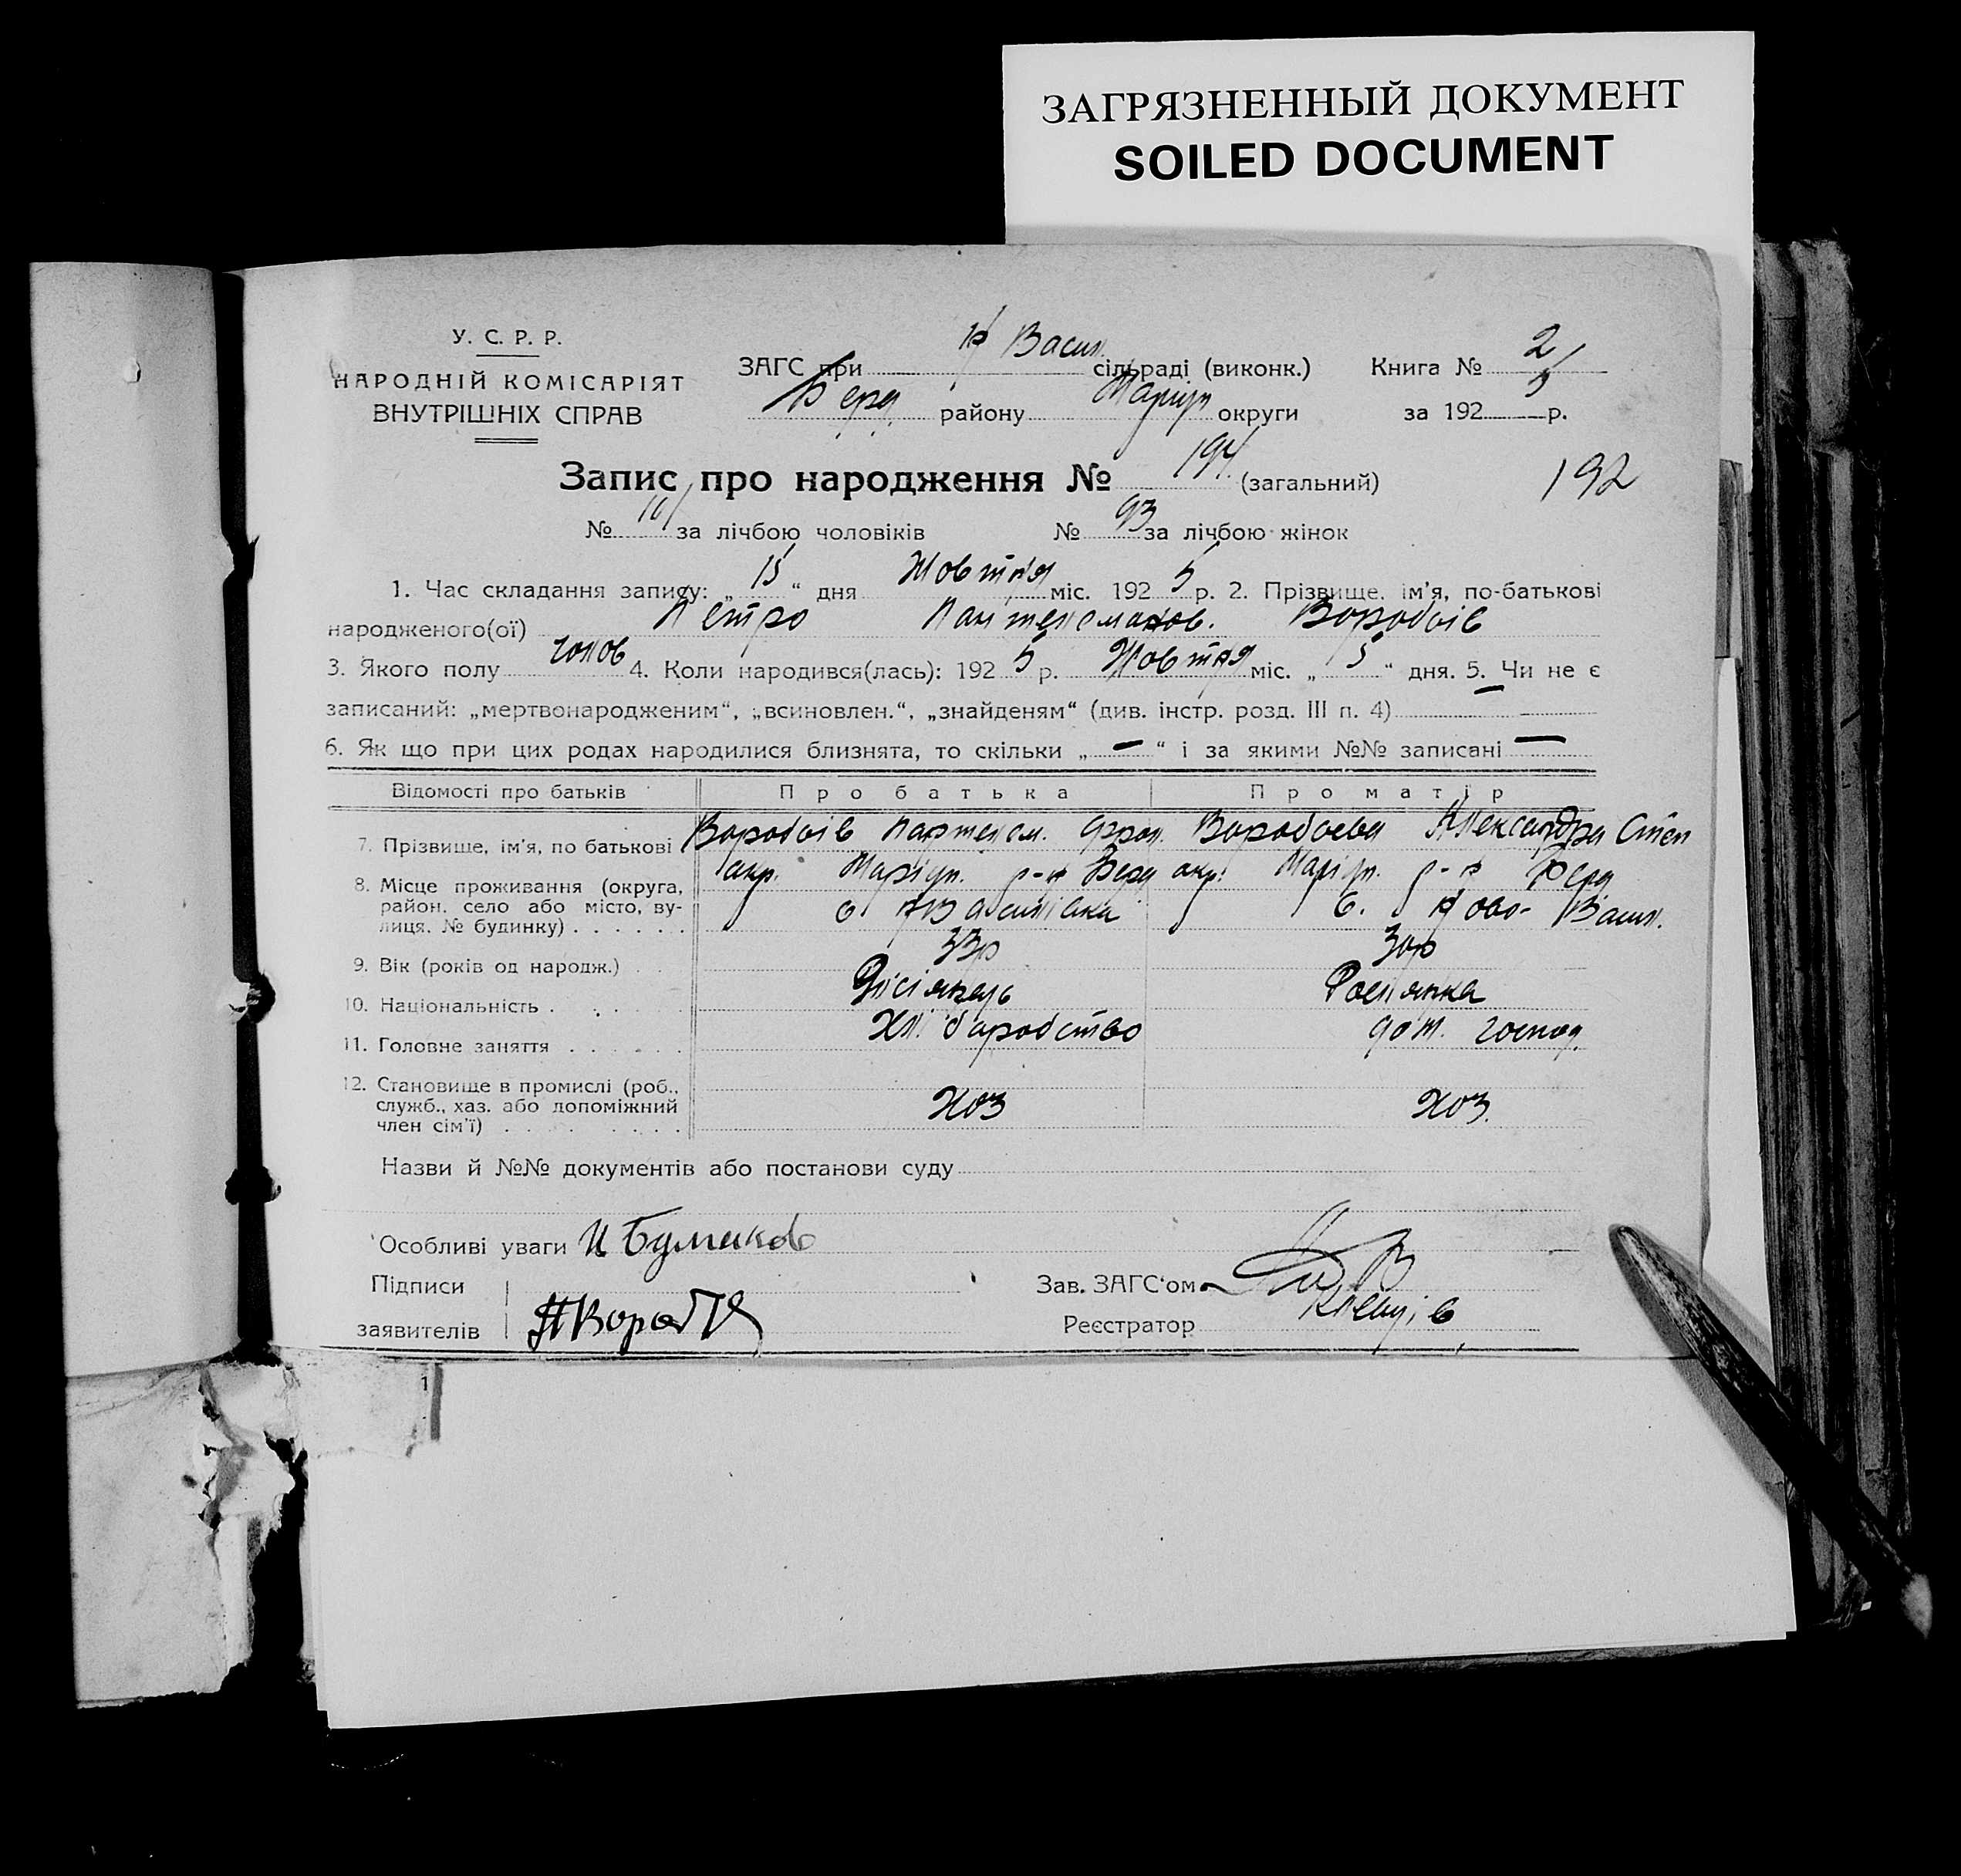 ЗАГРЯЗНЕННЫЙ ДОКУМЕНТ
SOILED DOCUMENT
У. С. Р. Р.
НАРОДНІЙ КОМІСАРІЯТ
ВНУТРІШНІХ СПРАВ
ЗАГС при Н Васил. сільраді (виконк.) Книга № 2
Берд району Маріуп округи за 192 5 р.
Запис про народження № 194 (загальний) 192
№ 101 за лічбою чоловіків № 93 за лічбою жінок
1. Час складання запису: „ 15 “ дня Жовтня міс. 192 5 р. 2. Прізвище, ім'я, по-батькові
народженого(ої) Петро Пантелемонов. Воробьів
3. Якого полу чолов 4. Коли народився(лась): 192 5 р. Жовтня міс. „ 5 “ дня. 5. Чи не є
записаний: „мертвонародженим“, „всиновлен.“, „знайденям“ (див. інстр. розд. III п. 4) —
6. Як що при цих родах народилися близнята, то скільки „ — “ і за якими №№ записані —
Відомості про батьків Про батька Про матір
7. Прізвище, ім'я, по батькові Воробьів Пантелем. Фрол. Воробьева Александра Степ
8. Місце проживання (округа, район, село або місто, вулиця, № будинку) окр. Маріуп. р-н Берд окр. Маріуп. р-н Берд
с НВасилівка с. Ново-Васил.
9. Вік (років од народж.) 33р 30р
10. Національність Росіянець Росіянка
11. Головне заняття Хліборобство дом. господ.
12. Становище в промислі (роб.,
служб., хаз. або допоміжний
член сім'ї) хоз хоз.
Назви й №№ документів або постанови суду
Особливі уваги
Підписи
Зав. ЗАГС'ом
заявителів
Реєстратор
1